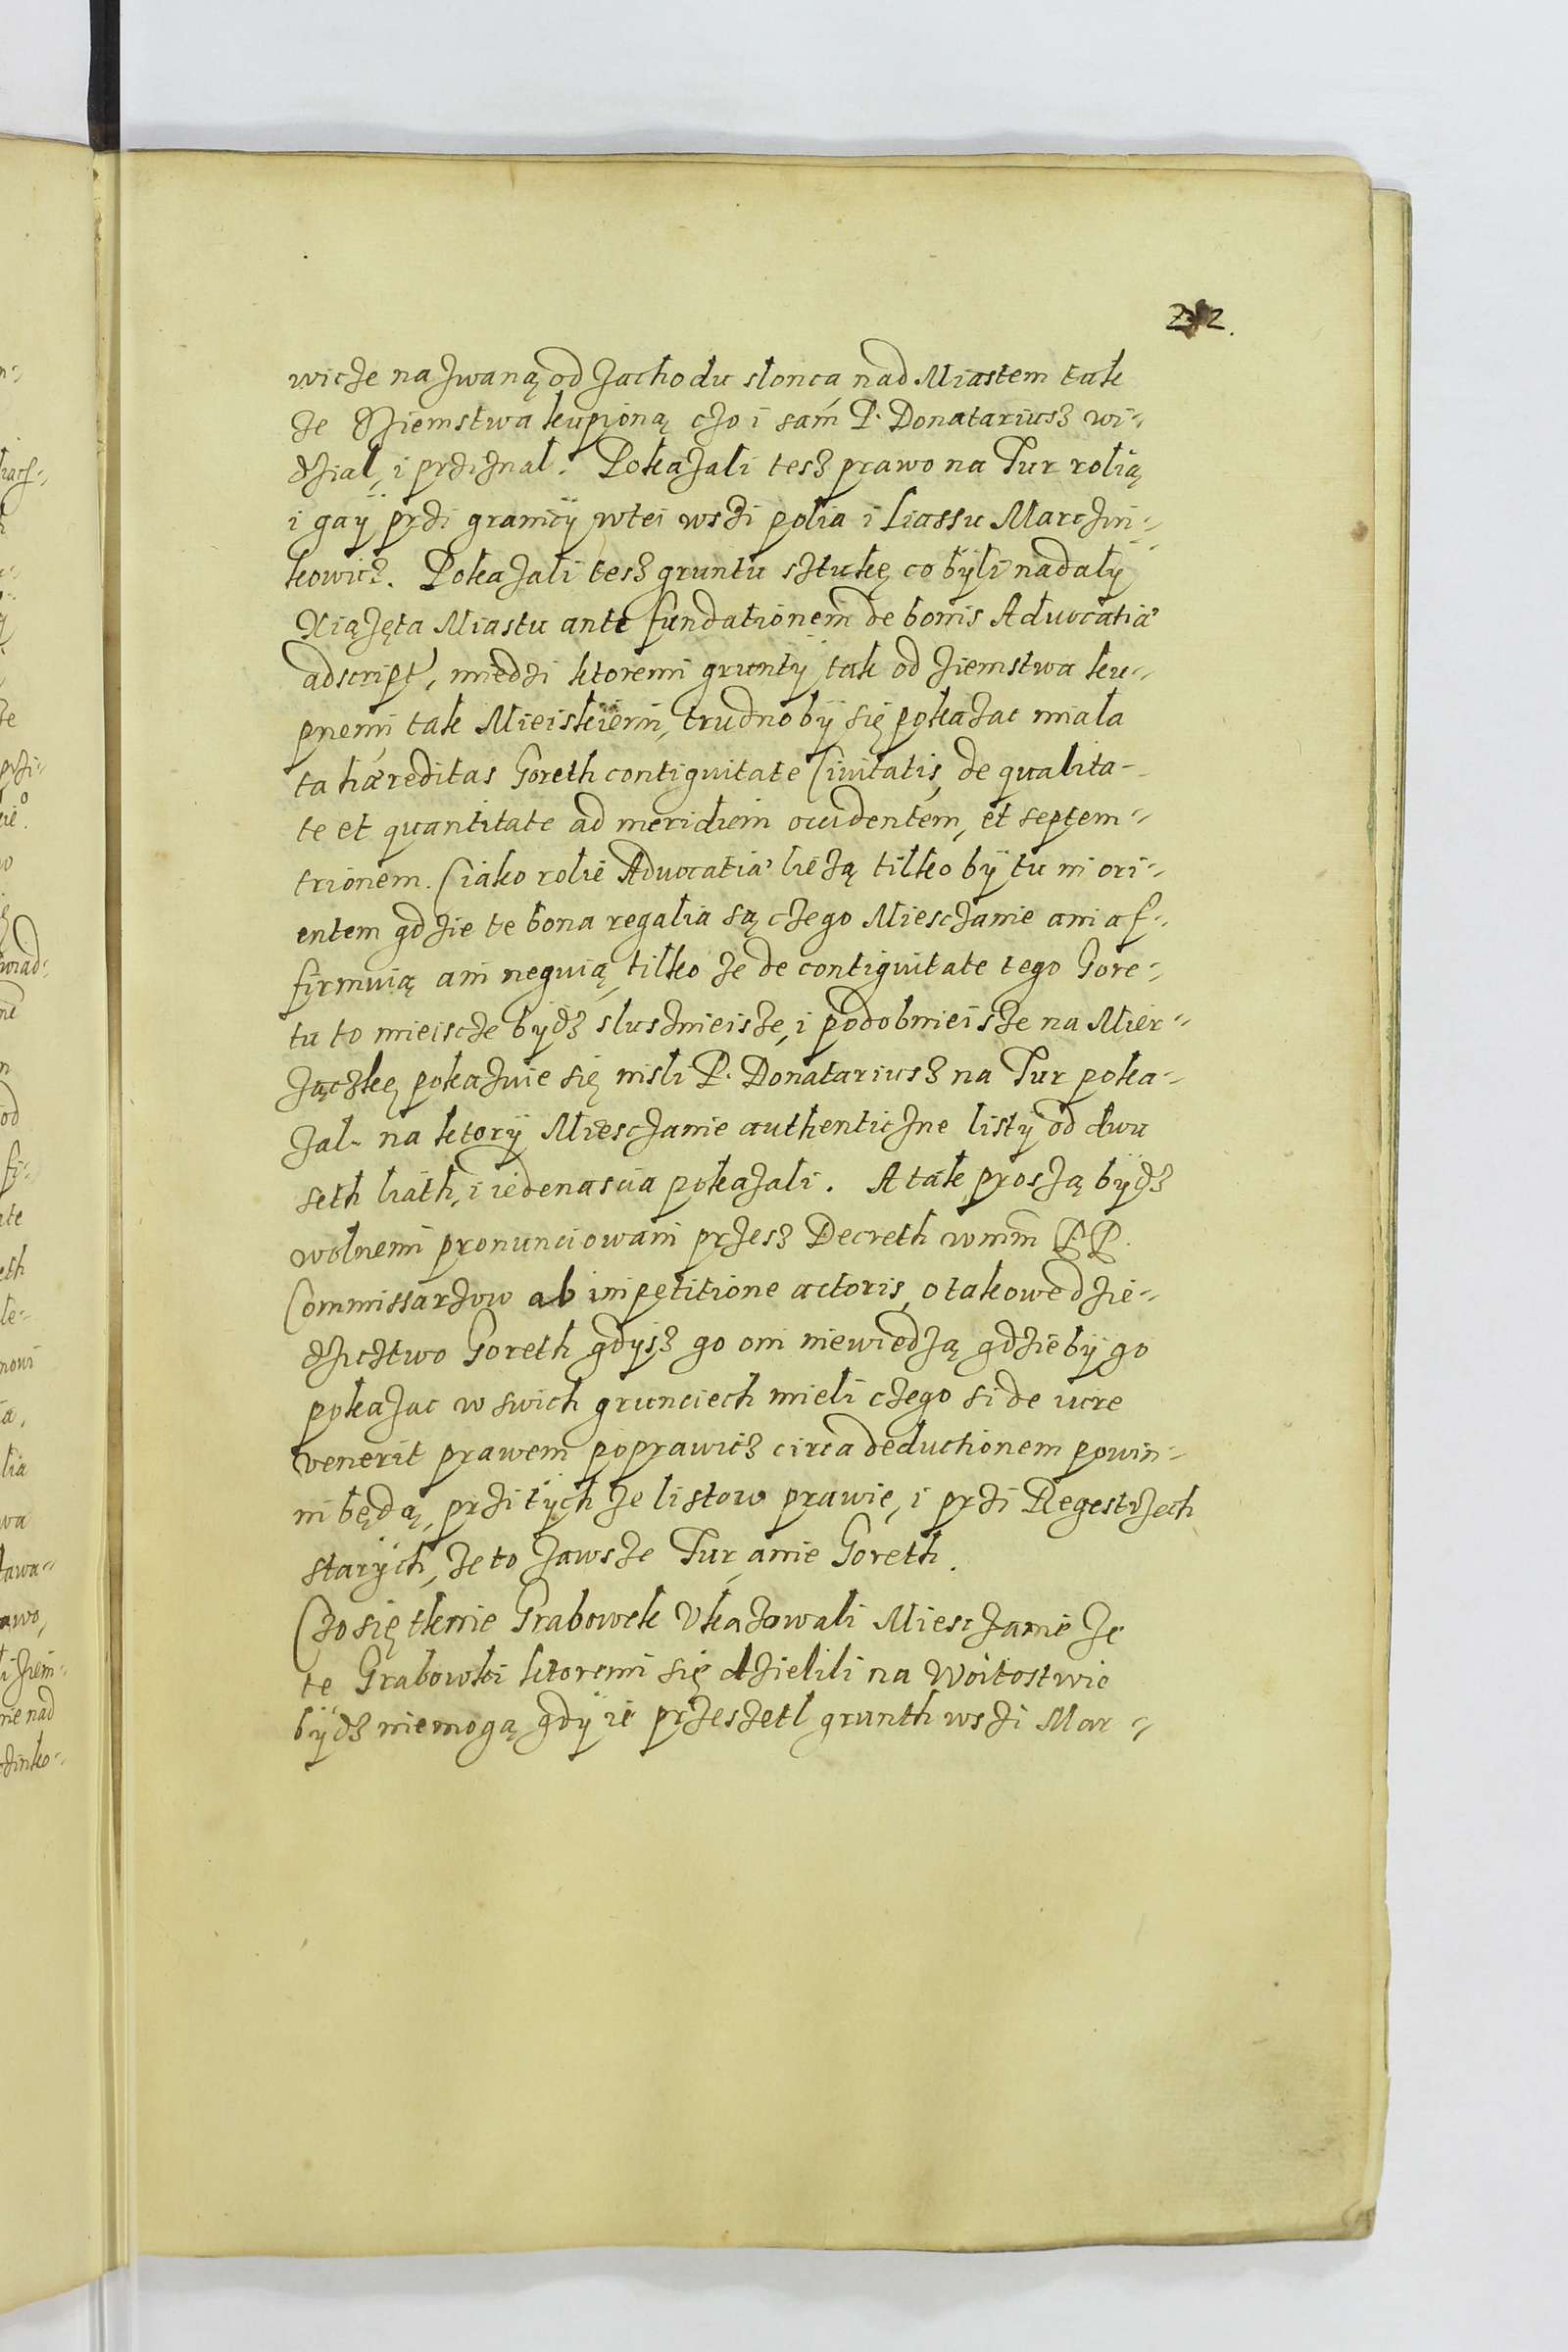 212.
wicze nazwaną od zachodu slonca nad Miastem tak
ze dziemstwa kupioną czo i sam P. Donatariusz wi-
dzial, i prziznal. Pokazali tesz prawo na Tur rolią
i gaÿ przi granicÿ wtei wszi polia i Liassu Marczin-
kowicz. Pokazali tesz gruntu sztukę co bÿli nadalÿ
Xiążęta Miastu ante fundationem de bonis Advocatiæ
adscript, miedzi ktoremi gruntÿ tak od ziemstwa ku-
pnemi tak Mieiskiemi, trudno bÿ się pokazac miala
ta hæreditas Goreth contiguitate Civitatis, de qualita-
te et quantitate ad meridiem occidentem, et septem-
trionem. Ciako rolie Advocatiæ lieżą tilko bÿ tu in ori-
entem gdzie te bona regalia są czego Miesczanie ani af-
firmuią ani neguią, tilko ze de contiguitate tego Gore-
tu to mieiscze bÿdz slusznieisze, i podobnieisze na Mier-
zączkę pokazuie się nisli P. Donatariusz na Tur poka-
zal na ktorÿ Miesczanie authenticzne listy od dwu
seth liath, i iedenascia pokazali. A tak proszą bÿdz
wolnemi pronunciowani przesz Decreth wmm PP.
Commissarzow ab impetitione actoris, o takowe dzie-
dzicztwo Goreth gdysz go oni niewiedzą gdzie bÿ go
pokazac w swich grunciech mieli czego si de iure
venerit prawem poprawicz circa deductionem powin-
ni będą, przi tÿch ze listow prawie, i przi Regestrzech
starÿch, ze to zawsze Tur, a nie Goreth.
Czo się tknie Grabowek Ukazowali Miesczanie ze
te Grabowki ktoremi się dzielili na Woitostwie
bÿdz niemogą gdÿ ie przeszetl grunth wszi Mar-